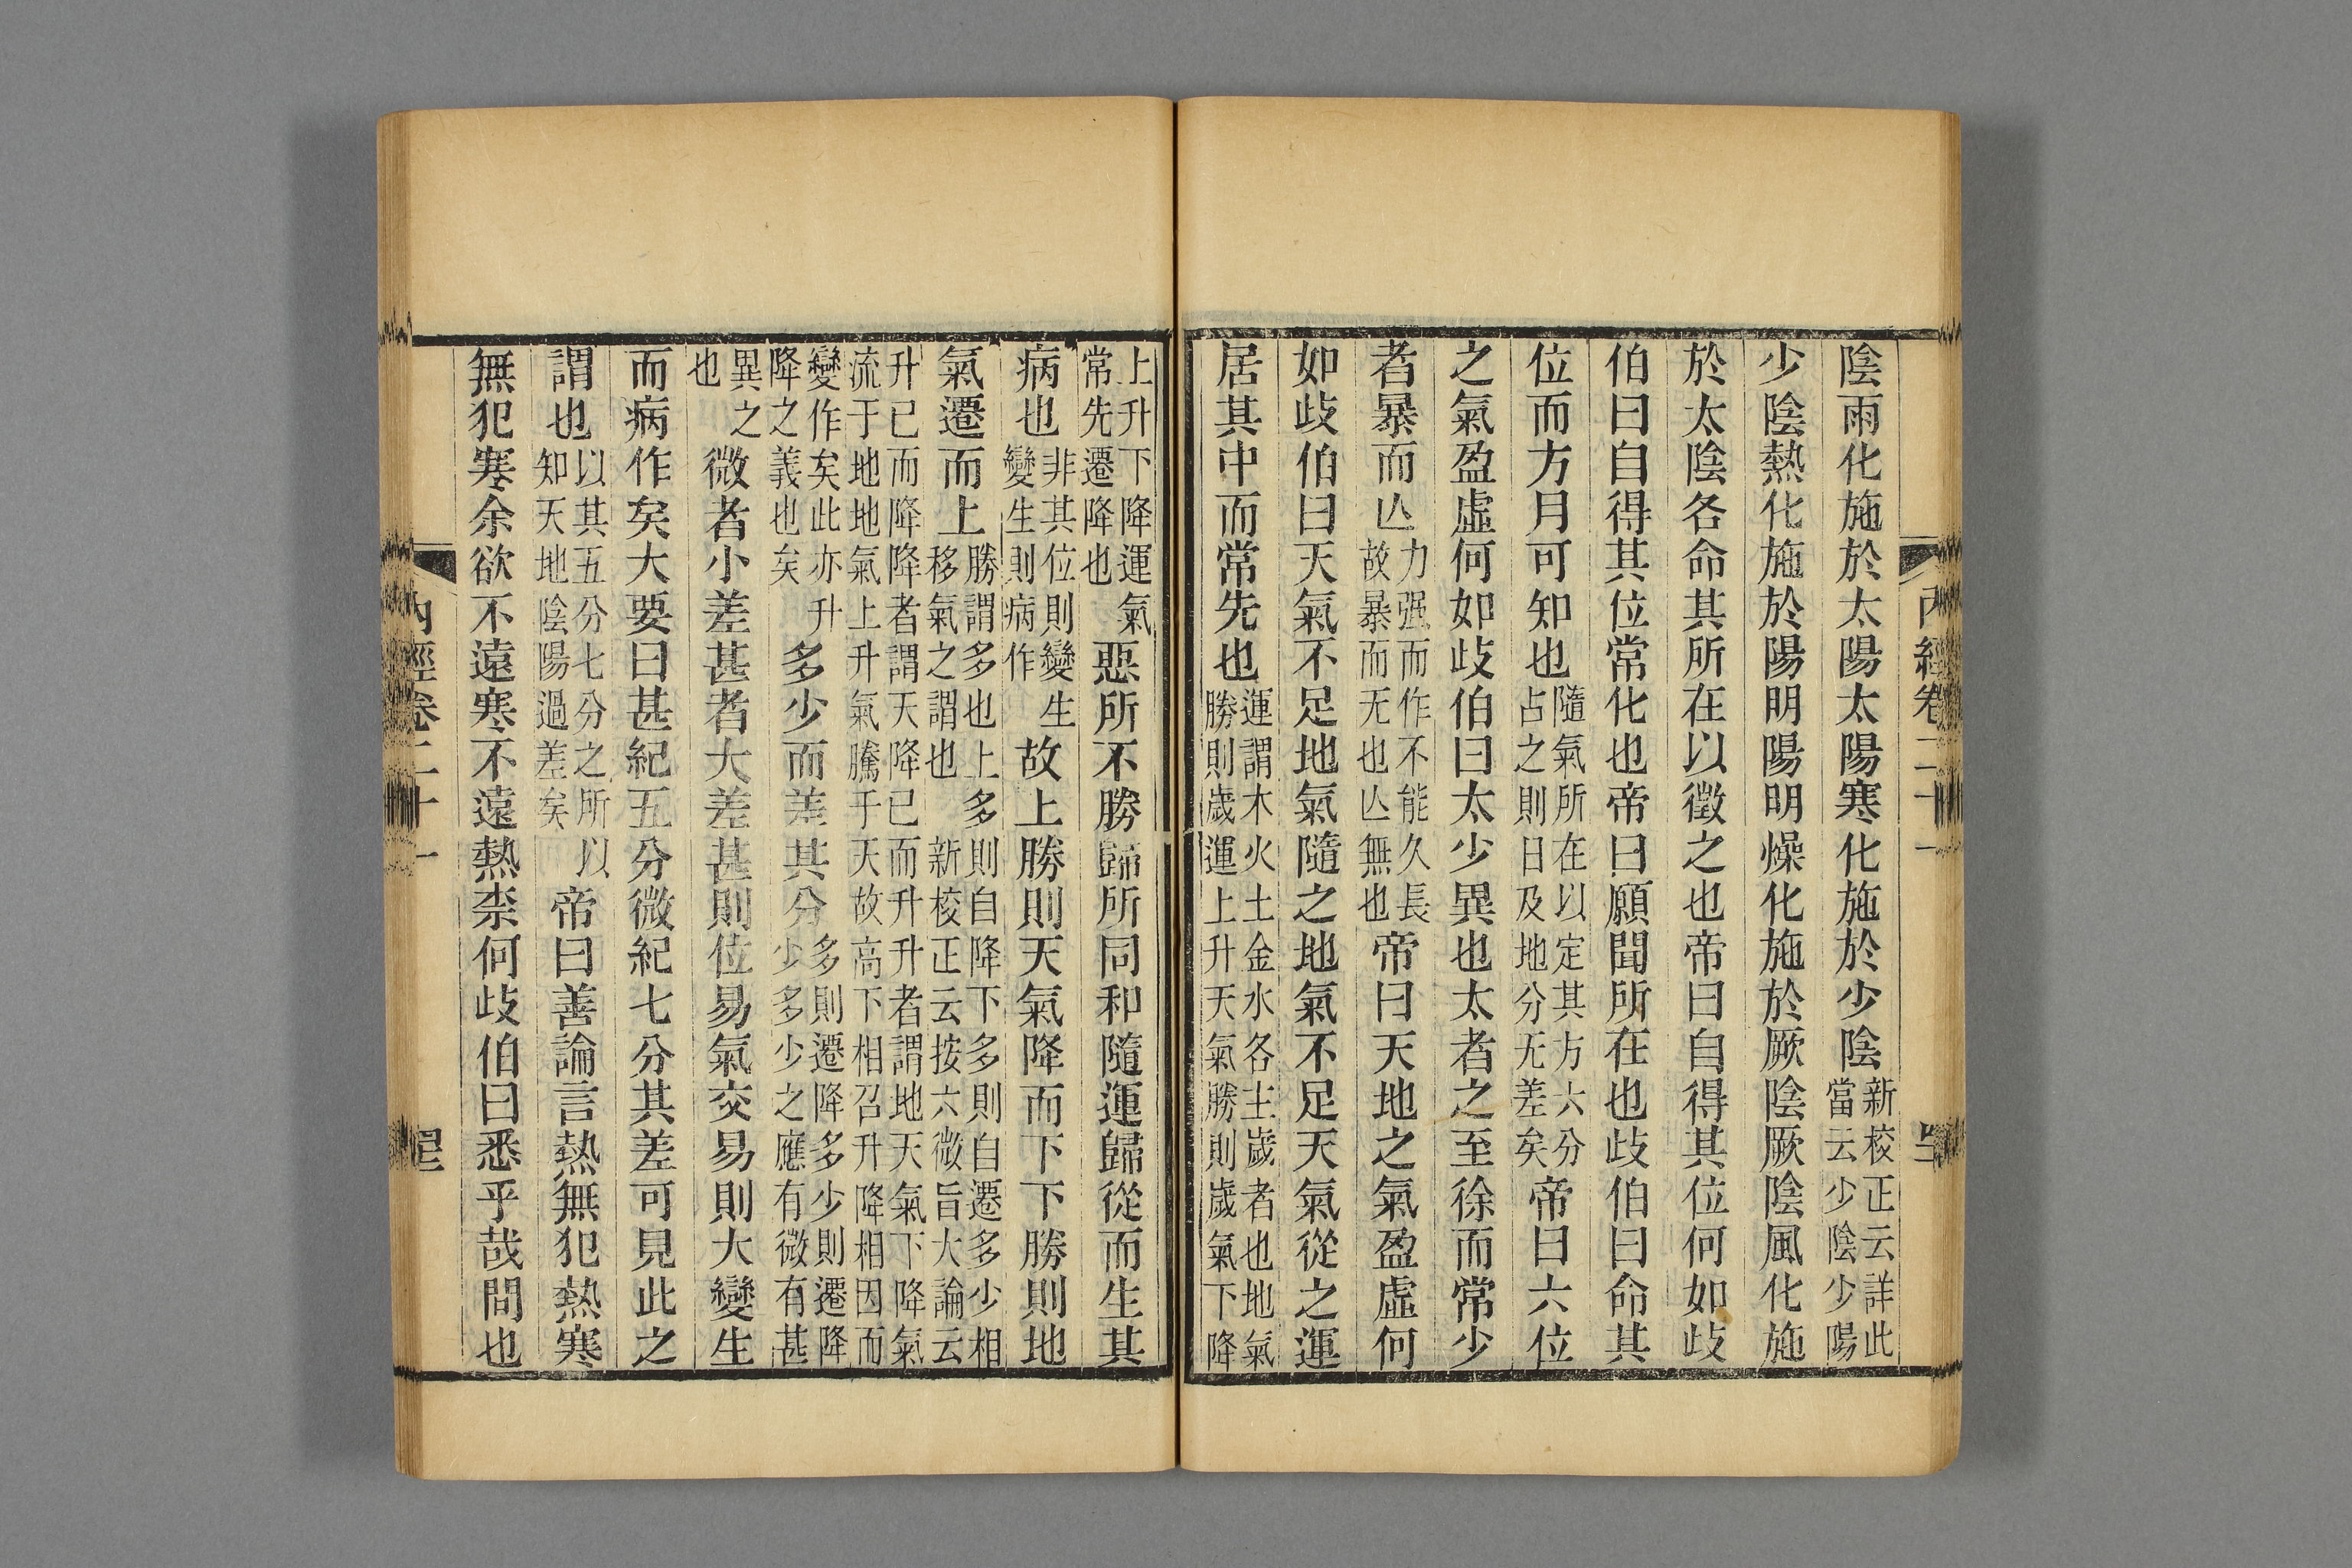 內經卷二十一
陰雨化施於太陽太陽寒化施於少陰新校正云詳此當云少陰少陽
少陰熱化施於陽明陽明燥化施於厥陰厥陰風化施
於太陰各命其所在以徵之也帝曰自得其位何如歧
伯曰自得其位常化也帝曰願聞所在也歧伯曰命其
位而方月可知也隨氣所在以定其方六分占之則日及地分无差矣帝曰六位
之氣盈虛何如歧伯曰太少異也太者之至徐而常少
者暴而亾力强而作不能久長故暴而无也亾無也帝曰天地之氣盈虛何
如歧伯曰天氣不足地氣隨之地氣不足天氣從之運
居其中而常先也運謂木火土金水各主歲者也地氣勝則歲運上升天氣勝則歲氣下降
上升下降運氣常先遷降也惡所不勝歸所同和隨運歸從而生其
病也非其位則變生變生則病作故上勝則天氣降而下下勝則地
氣遷而上勝謂多也上多則自降下多則自遷多少相移氣之謂也新校正云按六微旨大論云
升已而降降者謂天降已而升升者謂地天氣下降氣流于地地氣上升氣騰于天故高下相召升降相因而
變作矣此亦升降之義也矣多少而差其分多則遷降多少則遷降少多少之應有微有甚
異之也微者小差甚者大差甚則位易氣交易則大變生
而病作矣大要曰甚紀五分微紀七分其差可見此之
謂也以其五分七分之所以知天地陰陽過差矣帝曰善論言熱無犯熱寒
無犯寒余欲不遠寒不遠熱柰何歧伯曰悉乎哉問也
內經卷二十一